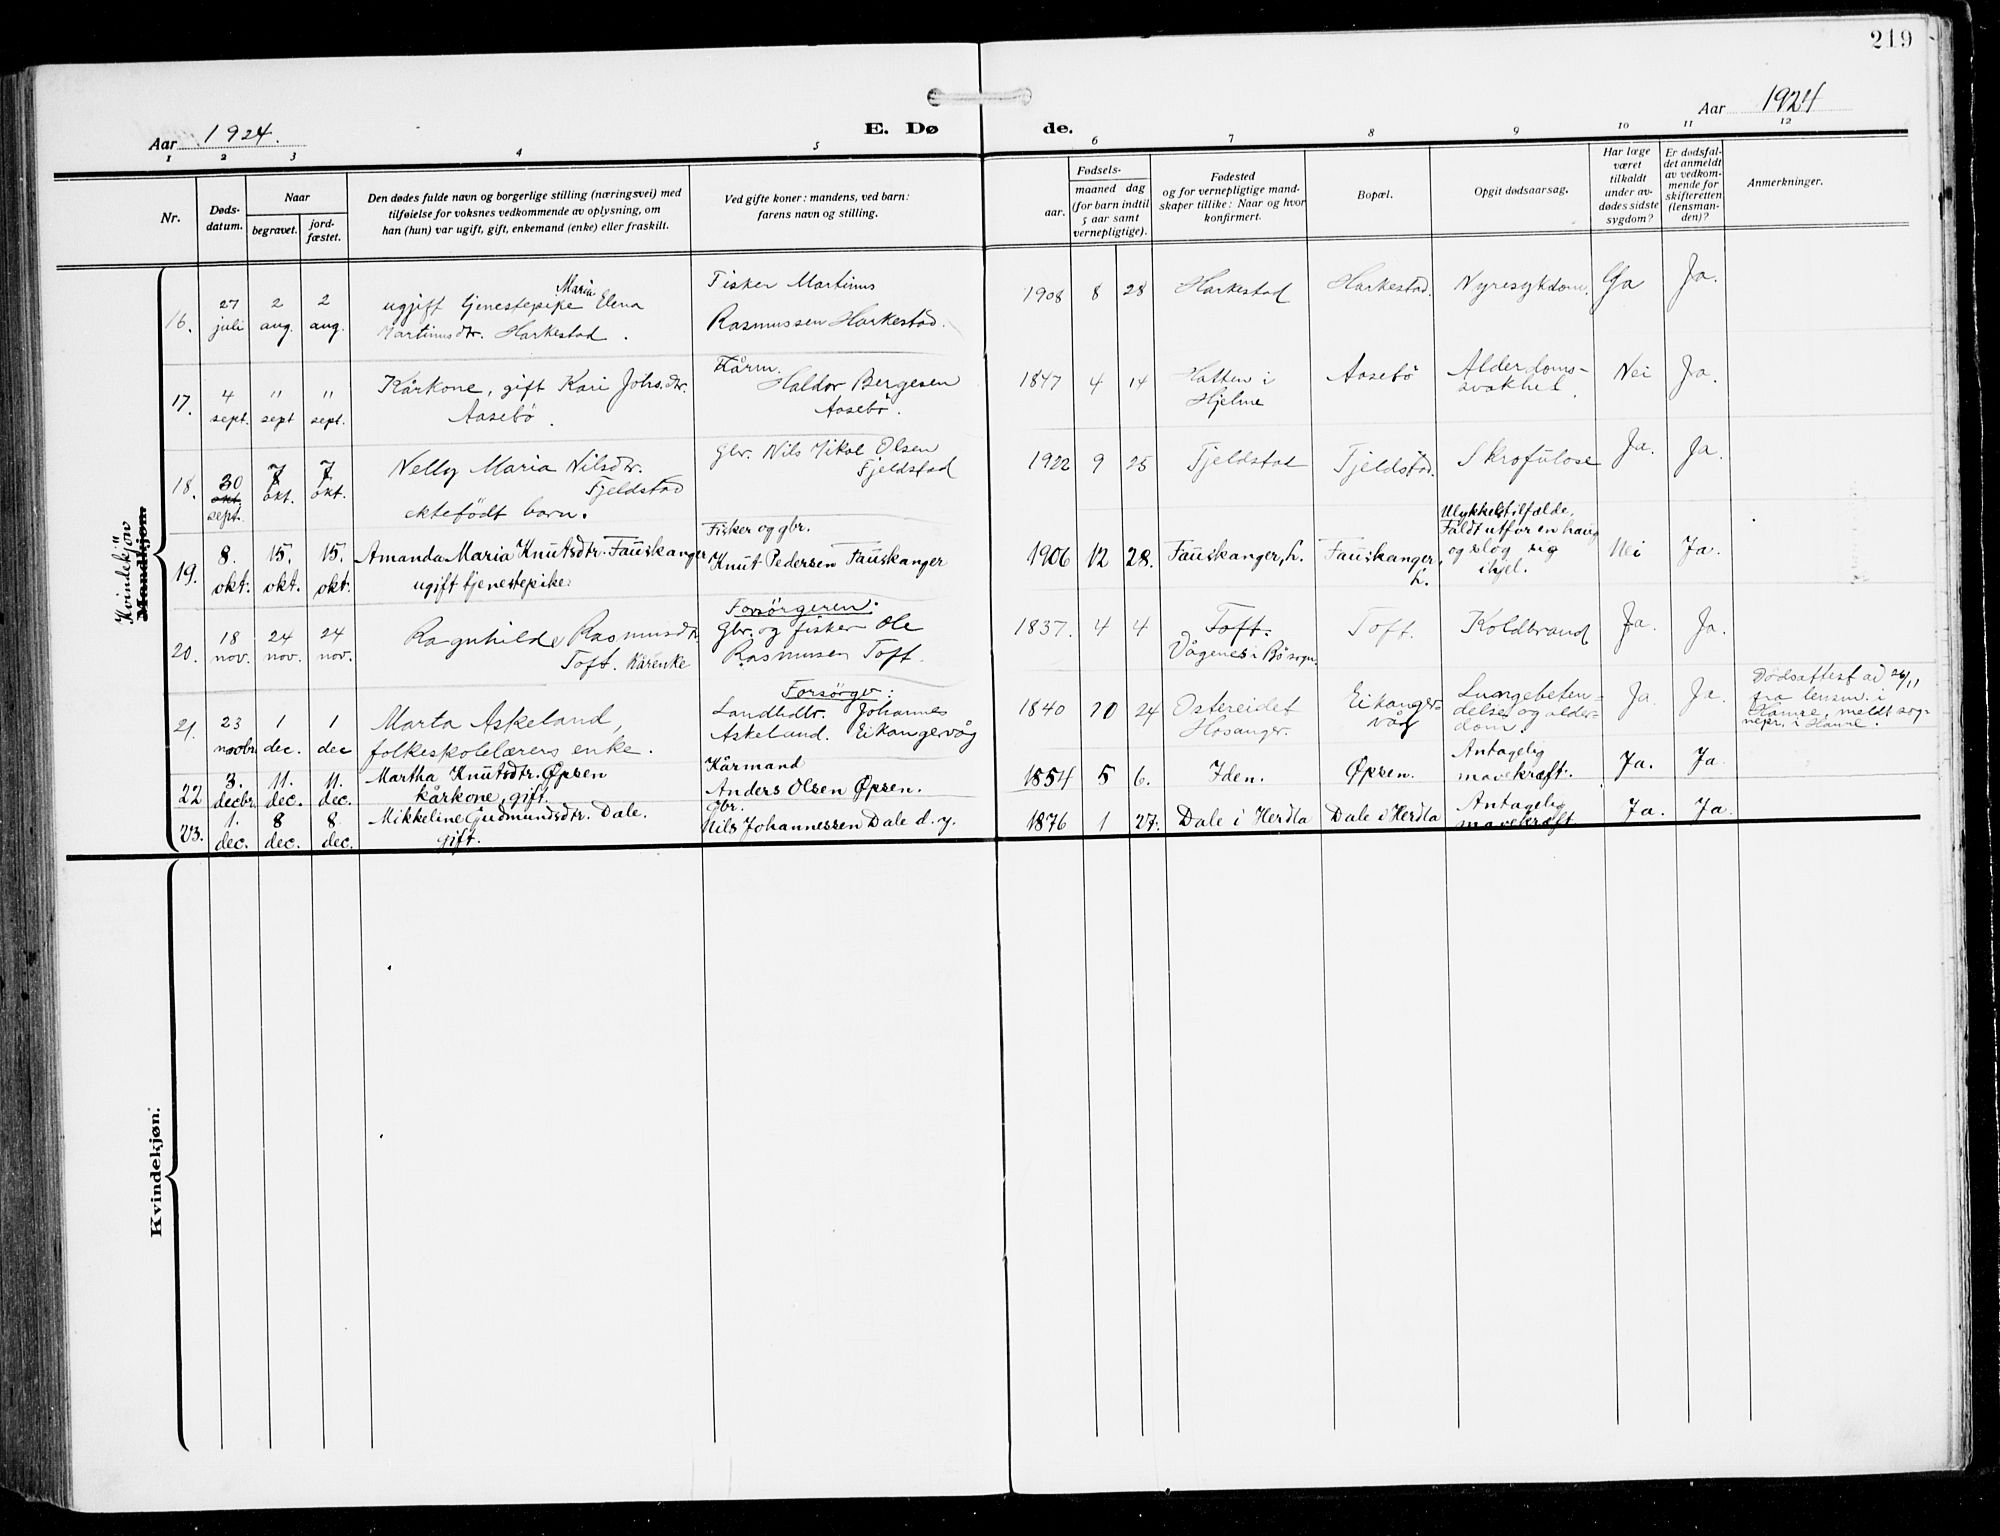 219
Aar 1924.
E. Dø
de.
Aar 1924
1 2 3 4 5 6 7 8 9 10 11 12
Nr.
Døds-
datum.
Naar
begravet.
jord-
fæstet.
Den dødes fulde navn og borgerlige stilling (næringsvei) med
tilføielse for voksnes vedkommende av oplysning, om
han (hun) var ugift, gift, enkemand (enke) eller fraskilt.
Ved gifte koner: mandens, ved barn:
farens navn og stilling.
Fødsels-
aar.
maaned dag
(for barn indtil
5 aar samt
vernepligtige).
Fødested
og for vernepligtige mand-
skaper tillike: Naar og hvor
konfirmert.
Bopæl.
Opgit dødsaarsag.
Har læge
været
tilkaldt
under av-
dødes sidste
sygdom?
Er dødsfal-
det anmeldt
av vedkom-
mende for
skifteretten
(lensman-
den)?
Anmerkninger.
Kvindekjön
Mandkjøn.
16.
27
juli
2
aug.
2
aug.
Maria
ugift tjenestepike Elena
Martinusdtr. Harkestad.
Fisker Martinus
Rasmussen Harkestad.
1908 8 28
Harkestad
Harkestad.
Nyresykdom.
Ja
Ja.
17.
4
sept.
"
sept
"
sept.
Kårkone, gift Kari Johs.dtr.
Aasebö.
Kårm.
Haldor Bergesen
Aasebö.
1847 4 14
Hatten i
Hjelme
Aasebö
Alderdoms-
svakhet.
Nei
Ja.
18.
30
okt.
sept.
7
okt.
7
okt.
Nelly Maria Nilsdtr.
Fjeldstad
ektefödt barn.
Gbr. Nils Nikol Olsen
Fjeldstad
1922 9 25
Fjeldstad
Fjeldstad.
Skrofulose
Ja.
Ja.
19.
8.
okt.
15.
okt.
15.
okt.
Amanda Maria Knutsdtr. Fauskanger
ugift tjenestepike.
Fisker og gbr.
Knut Pedersen Fauskanger
1906 12 28.
Fauskanger, h.
Fauskanger,
h.
Ulykkestilfælde,
Faldt utfor en haug
og slog sig
ihjel.
Nei
Ja.
20.
18
nov.
24
nov.
24
nov.
Ragnhilde Rasmusdtr.
Toft. Kårenke
Forsörgeren:
Gbr. og fisker Ole
Rasmussen Toft.
1837. 4 4
Toft.
Vågenes i Bö sogn.
Toft.
Koldbrand
Ja.
Ja.
21.
23
novbr.
1
dec.
1
dec
Marta Askeland,
folkeskolelærers enke.
Forsörger:
Landhdlr. Johannes
Askeland. Eikangervåg
1840 10 24
Ostereidet
Hosanger.
Eikanger-
våg
Lungebeten-
delse og alder-
dom.
Ja
Ja.
Dödsattest av 26/11
fra lensm. i
Hamre, meldt sog-
nepr. i Hamre.
22
3.
decbr.
11.
dec.
11.
dec.
Martha Knutsdtr. Øpsen
kårkone, gift.
Kårmand
Anders Olsen Øpsen.
1854 5 6.
Iden.
Øpsen.
Antagelig
mavekræft.
Ja.
Ja
23.
1.
dec.
8
dec.
8.
dec.
Mikkeline Gudmundsdtr. Dale.
gift.
Gbr.
Nils Johannessen Dale d.y.
1876 1 27.
Dale i Herdla
Dale i Herdla
Antagelig
mavekræft
Ja.
Ja.
Kvindekjøn.